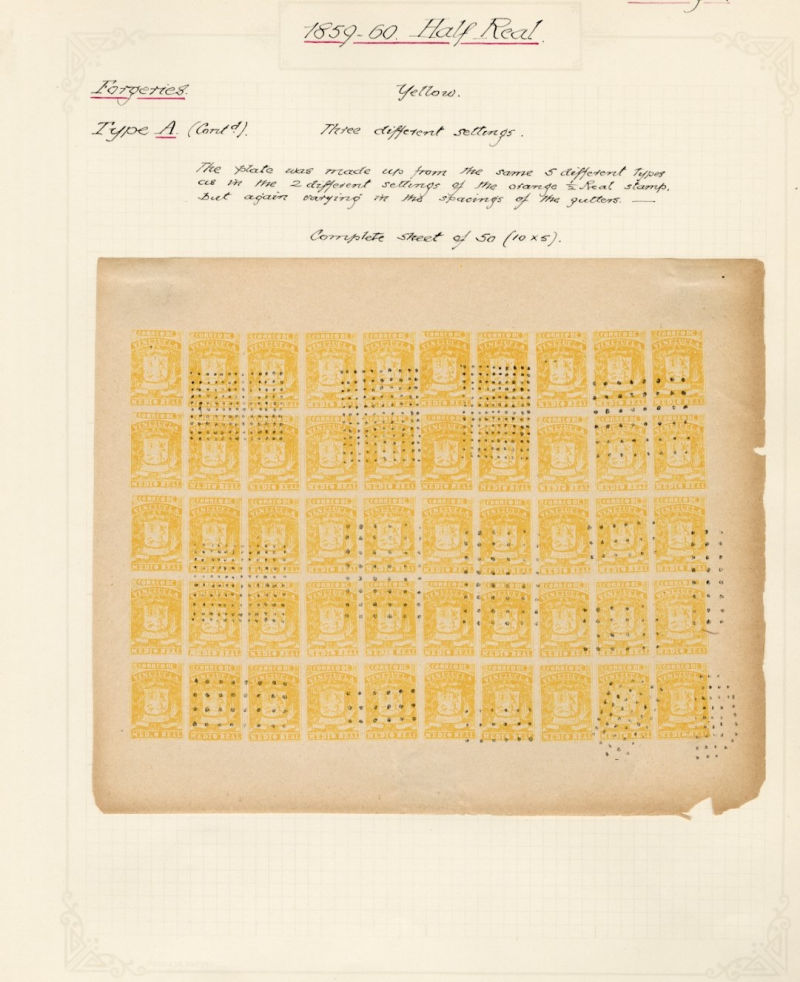 1859-60. Half Real.
Forgeries. Yellow.
Type A. (Contd). Three different settings.
The plate was made up from the same 5 different types
as in the 2 different settings of the orange ½ Real stamp,
but again varying in the spacings of the gutters. —
Complete sheet of 50 (10 x 5).
CORREO DE
VENEZUELA
MEDIO REAL